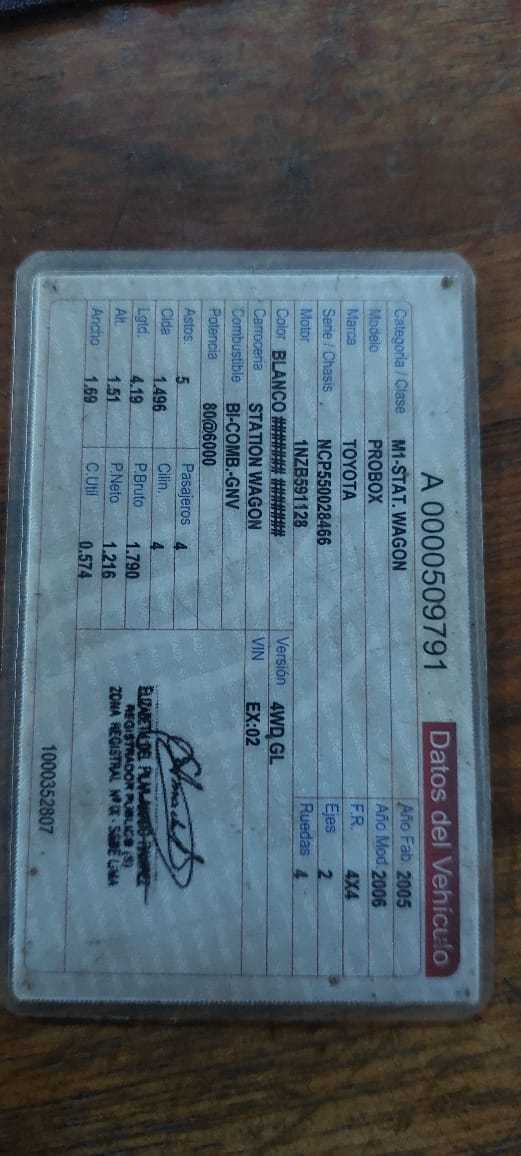 A 0000509791 Datos del Vehículo
Categoría / Clase M1-STAT. WAGON Año Fab. 2005
Modelo PROBOX Año Mod. 2006
Marca TOYOTA F.R. 4X4
Serie / Chasis NCP550028466 Ejes 2
Motor 1NZB591128 Ruedas 4
Color BLANCO ####### ####### Versión 4WD GL
Carrocería STATION WAGON VIN EX:02
Combustible BI-COMB.-GNV
Potencia 80@6000
Astos. 5 Pasajeros 4
Clda 1.496 Cilin. 4
Lgtd. 4.19 P.Bruto 1.790
Alt. 1.51 P.Neto 1.216
Ancho 1.69 C.Util 0.574
REGISTRADOR PUBLICO (S)
ZONA REGISTRAL Nº IX - SEDE LIMA
1000352807